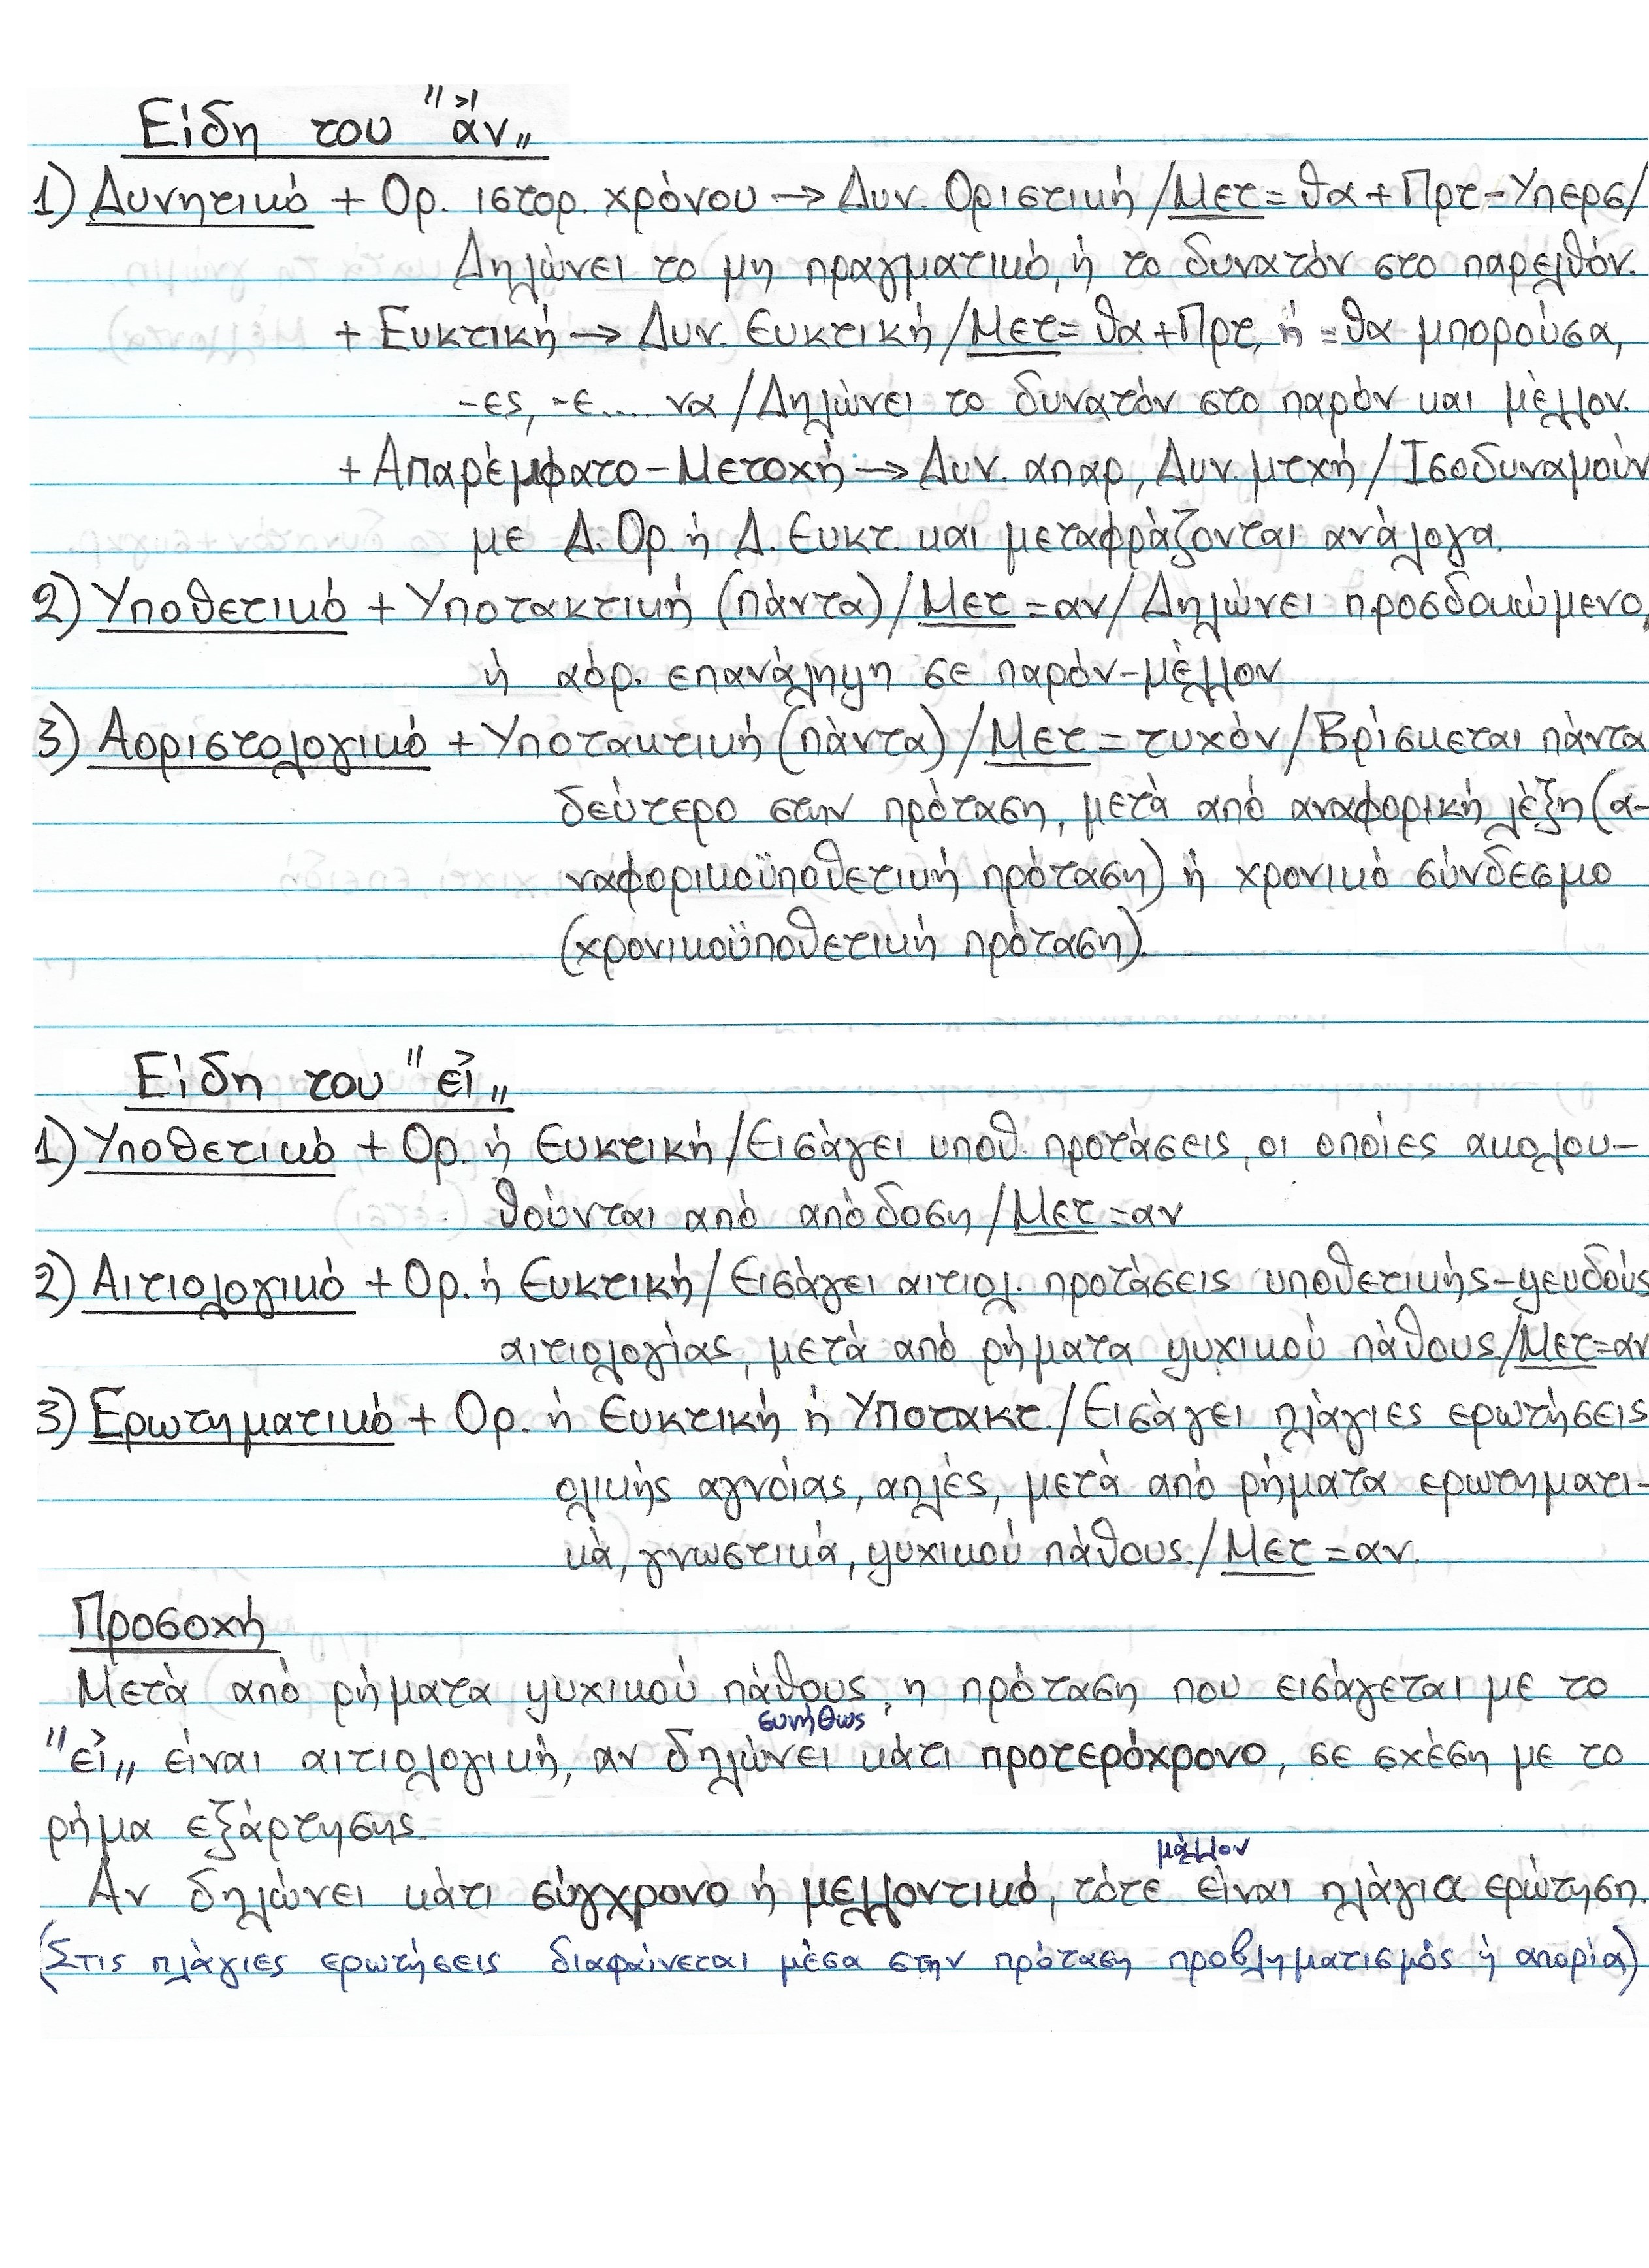 Είδη του "ἄν„
1) Δυνητικό + Ορ. ιστορ. χρόνου → Δυν. Οριστική / Μετ = θα + Πρτ - Υπερσ/
Δηλώνει το μη πραγματικό, ή το δυνατόν στο παρελθόν.
+ Ευκτική → Δυν. Ευκτική / Μετ = θα + Πρτ, ή = θα μπορούσα,
-ες, -ε.... να / Δηλώνει το δυνατόν στο παρόν και μέλλον.
+ Απαρέμφατο - Μετοχή → Δυν. απαρ, Δυν. μτχή / Ισοδυναμούν
με Δ. Ορ. ή Δ. Ευκτ. και μεταφράζονται ανάλογα.
2) Υποθετικό + Υποτακτική (πάντα) / Μετ = αν / Δηλώνει προσδοκώμενο,
ή αόρ. επανάληψη σε παρόν-μέλλον
3) Αοριστολογικό + Υποτακτική (πάντα) / Μετ = τυχόν / Βρίσκεται πάντα
δεύτερο στην πρόταση, μετά από αναφορική λέξη (α-
ναφορικοϋποθετική πρόταση) ή χρονικό σύνδεσμο
(χρονικοϋποθετική πρόταση).
Είδη του "εἰ„
1) Υποθετικό + Ορ. ή Ευκτική / Εισάγει υποθ. προτάσεις, οι οποίες ακολου-
θούνται από απόδοση / Μετ = αν
2) Αιτιολογικό + Ορ. ή Ευκτική / Εισάγει αιτιολ. προτάσεις υποθετικής-ψευδούς
αιτιολογίας, μετά από ρήματα ψυχικού πάθους / Μετ = αν
3) Ερωτηματικό + Ορ. ή Ευκτική ή Υποτακτ. / Εισάγει πλάγιες ερωτήσεις
ολικής αγνοίας, απλές, μετά από ρήματα ερωτηματι-
κά, γνωστικά, ψυχικού πάθους. / Μετ = αν.
Προσοχή
Μετά από ρήματα ψυχικού πάθους, η πρόταση που εισάγεται με το
συνήθως
"εἰ„ είναι αιτιολογική, αν δηλώνει κάτι προτερόχρονο, σε σχέση με το
ρήμα εξάρτησης.
μάλλον
Αν δηλώνει κάτι σύγχρονο ή μελλοντικό, τότε είναι πλάγια ερώτηση.
(Στις πλάγιες ερωτήσεις διαφαίνεται μέσα στην πρόταση προβληματισμός ή απορία)